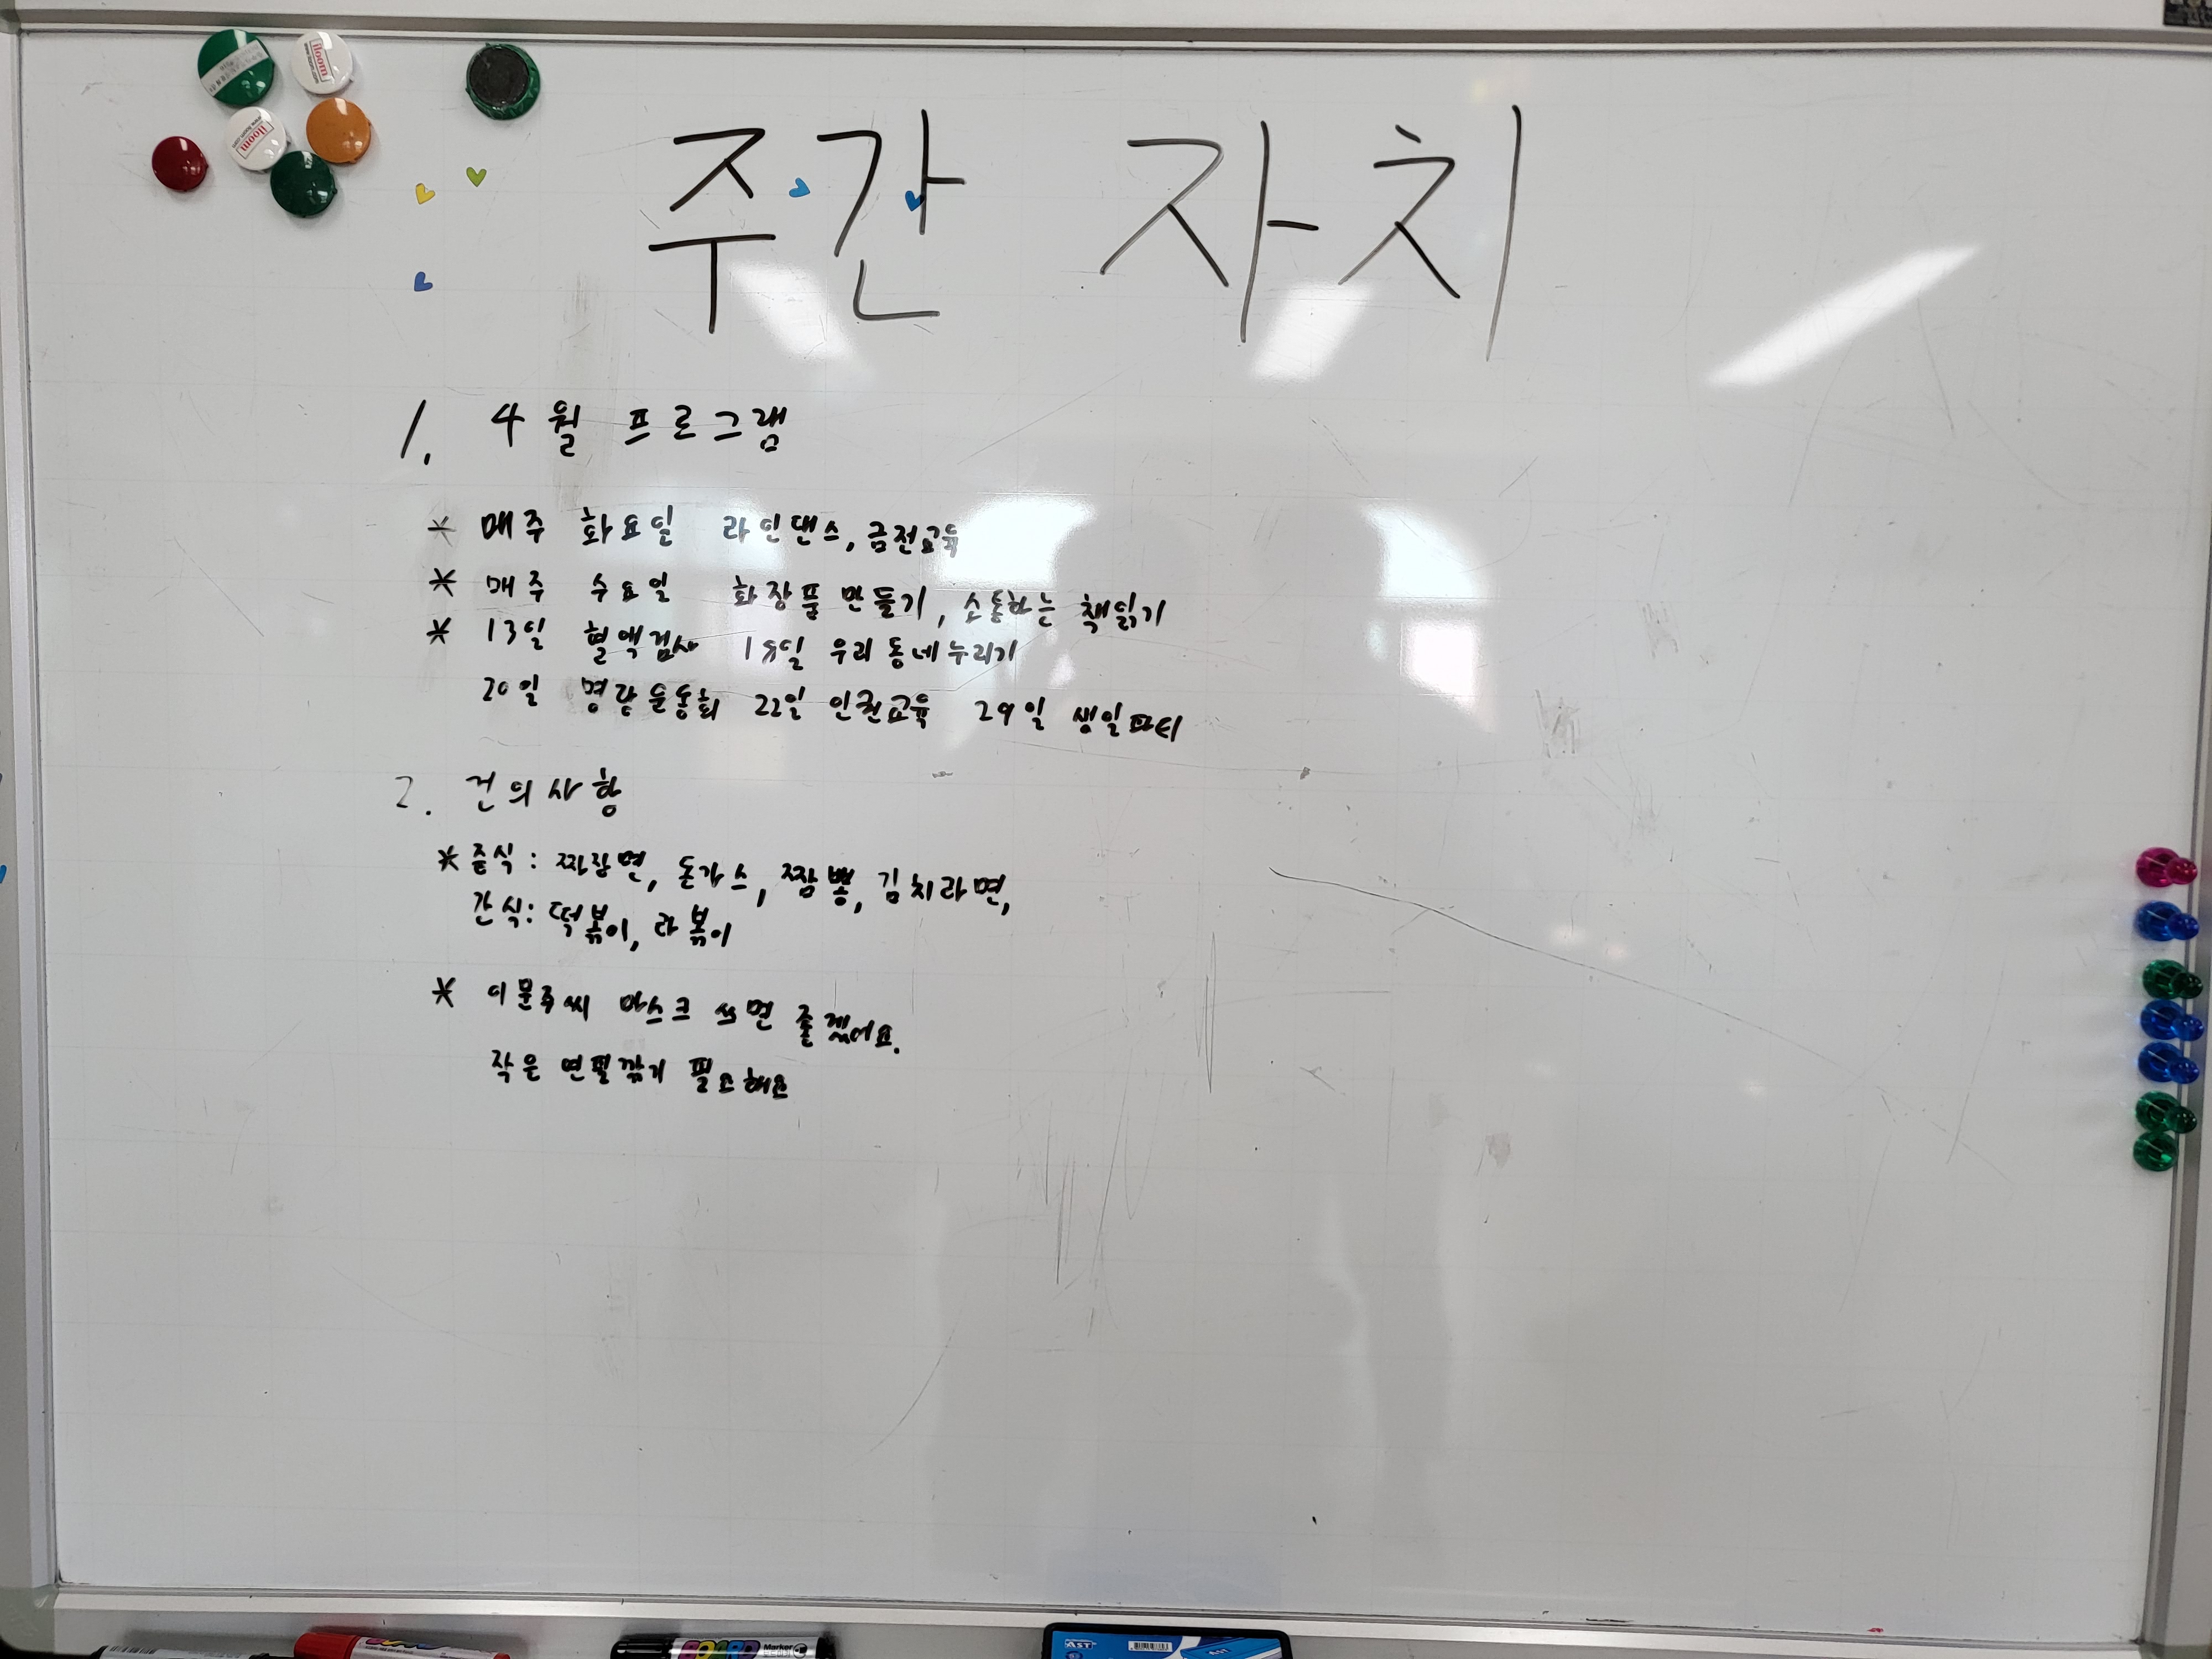 iloom
iloom
주간 자치
1. 4월 프로그램
* 매주 화요일 라인댄스, 금전교육
* 매주 수요일 화장품 만들기, 소통하는 책읽기
* 13일 혈액검사 15일 우리동네누리기
20일 명랑운동회 22일 인권교육 29일 생일파티
2. 건의사항
* 중식: 짜장면, 돈가스, 짬뽕, 김치라면,
간식: 떡볶이, 라볶이
* 이문주씨 마스크 쓰면 좋겠어요.
작은 연필깎기 필요해요
BOARD Marker
AST